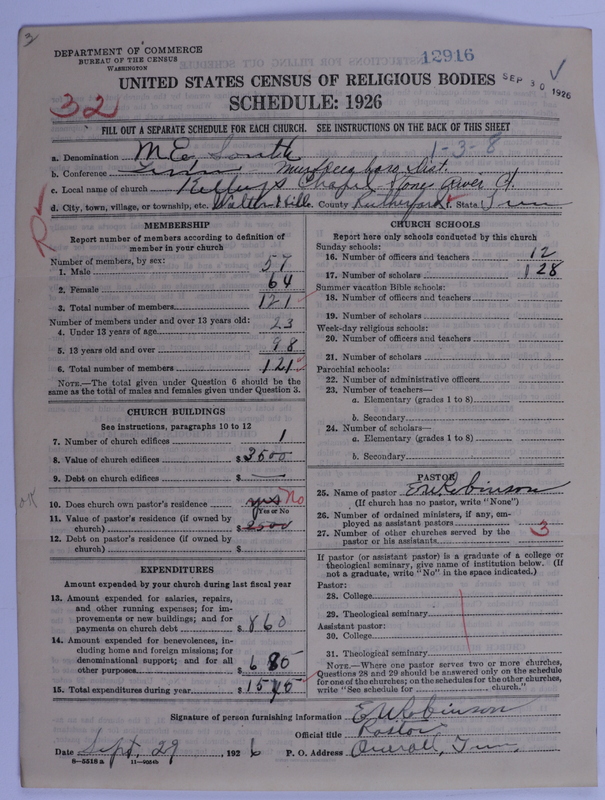 3
DEPARTMENT OF COMMERCE
BUREAU OF THE CENSUS
WASHINGTON
12916
UNITED STATES CENSUS OF RELIGIOUS BODIES
SEP 30 1926
32
SCHEDULE: 1926
FILL OUT A SEPARATE SCHEDULE FOR EACH CHURCH. SEE INSTRUCTIONS ON THE BACK OF THIS SHEET
1-3-8
a. Denomination M.E. South
b. Conference Murfreesboro Dist.
c. Local name of church Kelleys Chapel Stones River Ct.
d. City, town, village, or township, etc. Walter Hill. County Rutherford. State Tenn
R
MEMBERSHIP
Report number of members according to definition of
member in your church
Number of members, by sex:
1. Male 57
2. Female 64
3. Total number of members 121
Number of members under and over 13 years old:
4. Under 13 years of age 23
5. 13 years old and over 98
6. Total number of members 121
NOTE.—The total given under Question 6 should be the
same as the total of males and females given under Question 3.
CHURCH BUILDINGS
See instructions, paragraphs 10 to 12
7. Number of church edifices 1
8. Value of church edifices $ 3500
9. Debt on church edifices $ —
OK
10. Does church own pastor's residence yes No
Yes or No
11. Value of pastor's residence (if owned by
church) $ 2500
12. Debt on pastor's residence (if owned by
church) $
EXPENDITURES
Amount expended by your church during last fiscal year
13. Amount expended for salaries, repairs,
and other running expenses; for im-
provements or new buildings; and for
payments on church debt $ 860
14. Amount expended for benevolences, in-
cluding home and foreign missions; for
denominational support; and for all
other purposes $ 685
15. Total expenditures during year $ 1545
CHURCH SCHOOLS
Report here only schools conducted by this church
Sunday schools:
16. Number of officers and teachers 12
17. Number of scholars 128
Summer vacation Bible schools:
18. Number of officers and teachers
19. Number of scholars
Week-day religious schools:
20. Number of officers and teachers
21. Number of scholars
Parochial schools:
22. Number of administrative officers
23. Number of teachers—
a. Elementary (grades 1 to 8)
b. Secondary
24. Number of scholars—
a. Elementary (grades 1 to 8)
b. Secondary
PASTOR
25. Name of pastor E.W. Robinson
(If church has no pastor, write "None")
26. Number of ordained ministers, if any, em-
ployed as assistant pastors
27. Number of other churches served by the
pastor or his assistants 3
If pastor (or assistant pastor) is a graduate of a college or
theological seminary, give name of institution below. (If
not a graduate, write "No" in the space indicated.)
Pastor:
28. College
29. Theological seminary
Assistant pastor:
30. College
31. Theological seminary
NOTE.—Where one pastor serves two or more churches,
Questions 28 and 29 should be answered only on the schedule
for one of the churches; on the schedules for the other churches,
write "See schedule for church."
Signature of person furnishing information E W Robinson
Official title Pastor
Date Sept. 29 1926 P. O. Address Overall, Tenn.
8-5518 a 11-9054b